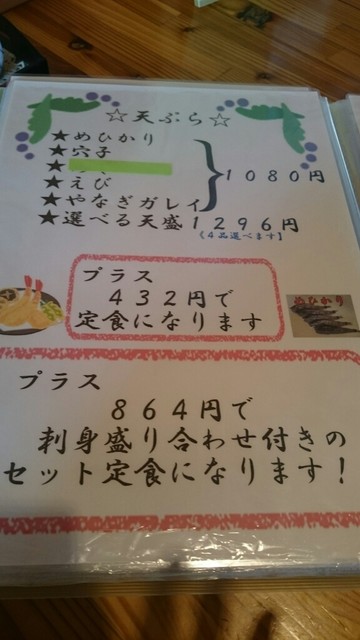 ☆天ぷら☆
★めひかり
★穴子
★
★えび
★やなぎガレイ
1080円
★選べる天盛 1296円
(4品選べます)
プラス
432円で
定食になります
めひかり
プラス
864円で
刺身盛り合わせ付きの
セット定食になります!